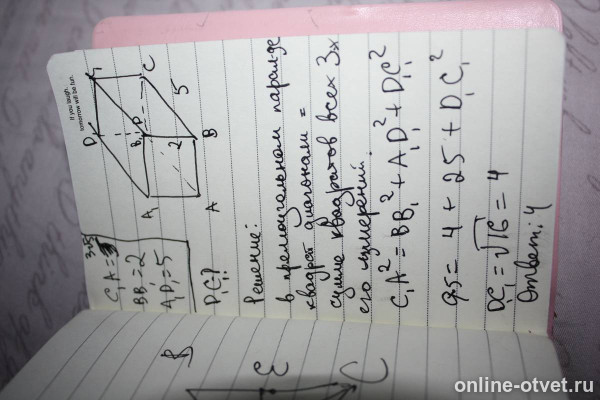 If you laugh,
tomorrow will be fun.
D
C
5
B₁
D
2
B
A₁
A
C₁A=3√5
BB₁=2
A₁D₁=5
D₁C₁?
Решение:
в прямоугольном паралл-де
квадрат диагонали =
сумме квадратов всех 3х
его измерений.
C₁A²=BB₁²+A₁D₁²+D₁C₁²
9·5=4+25+D₁C₁²
D₁C₁=√16=4
Ответ: 4
B
E
C
online-otvet.ru